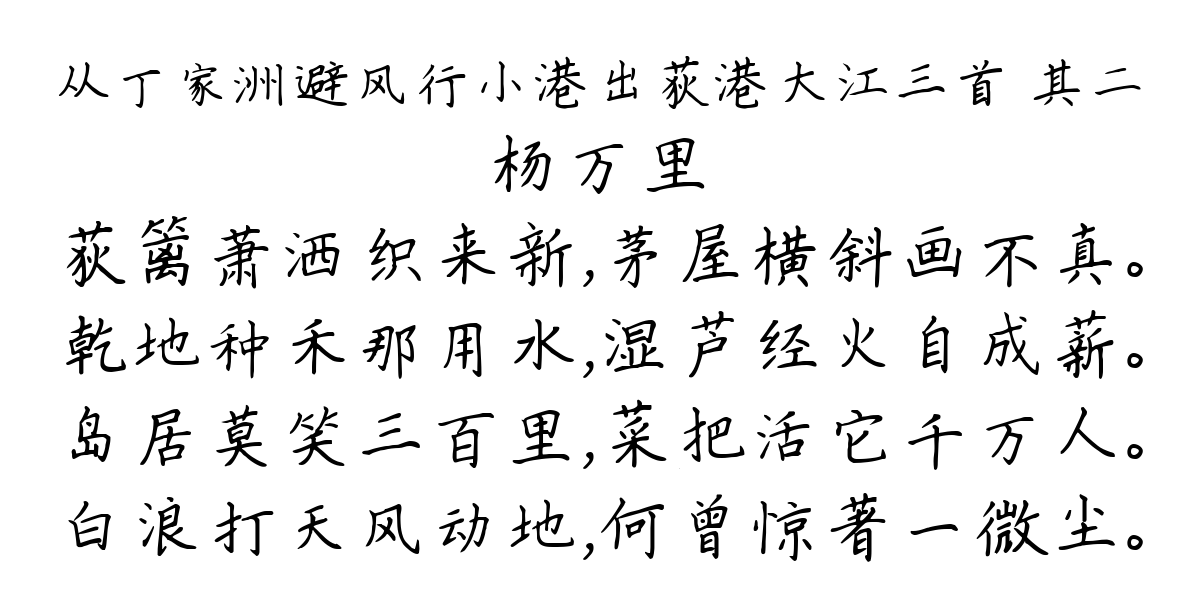 从丁家洲避风行小港出荻港大江三首 其二
杨万里
荻篱萧洒织来新,茅屋横斜画不真。
乾地种禾那用水,湿芦经火自成薪。
岛居莫笑三百里,菜把活它千万人。
白浪打天风动地,何曾惊著一微尘。